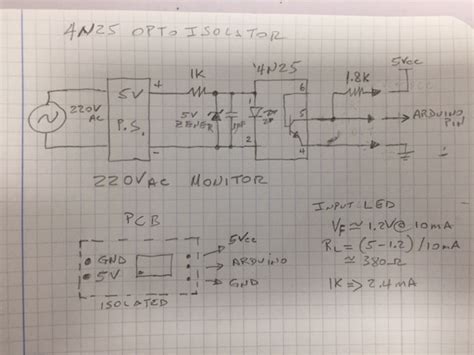 4N25 OPTO ISOLATOR
1K
4N25
1.8K
5Vcc
220V
AC
5V
P.S.
+
-
5V
ZENER
1
2
6
5
4
ARDUINO
PIN
220VAC MONITOR
PCB
GND
5V
ISOLATED
5Vcc
ARDUINO
GND
INPUT LED
VF ≃ 1.2V@ 10mA
RL = (5-1.2)/10mA
≃ 380Ω
1K ⇒ 2.4mA